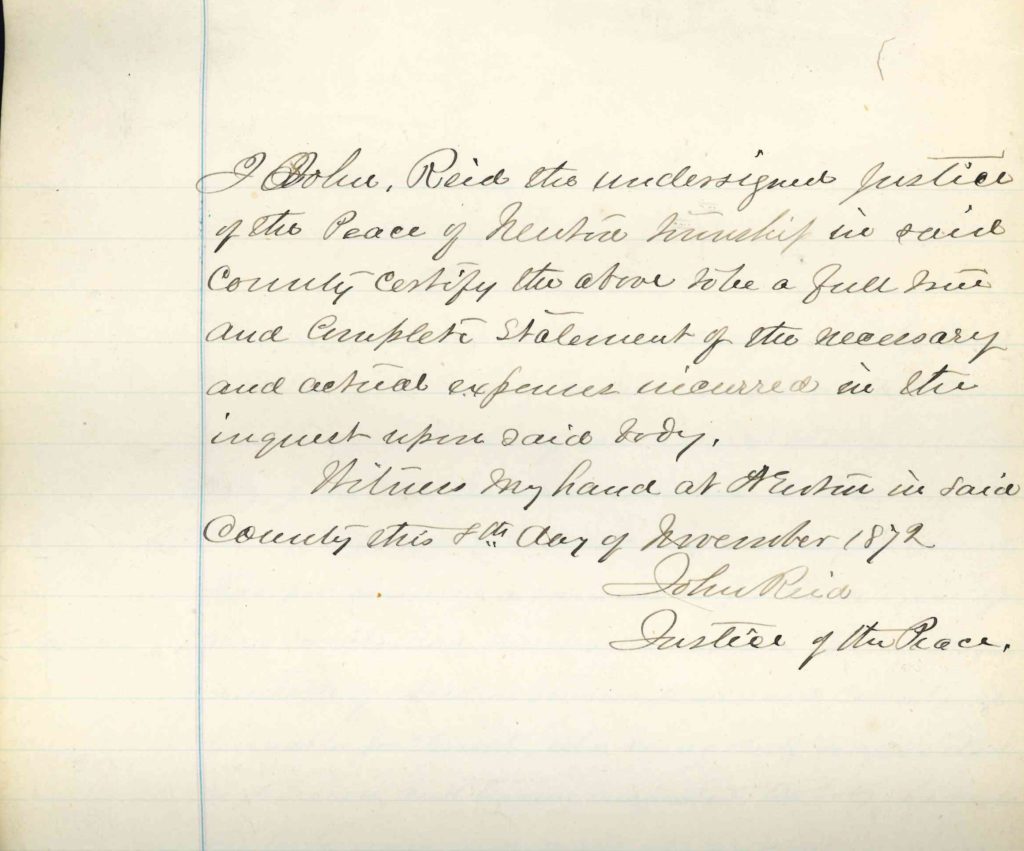 I John, Reid the undersigned Justice
of the Peace of Newton Township in said
County Certify the above to be a full true
and Complete Statement of the necessary
and actual expenses incurred in the
inquest upon said body.
Witness my hand at Newton in said
County this 8th day of November 1872
John Reid
Justice of the Peace.